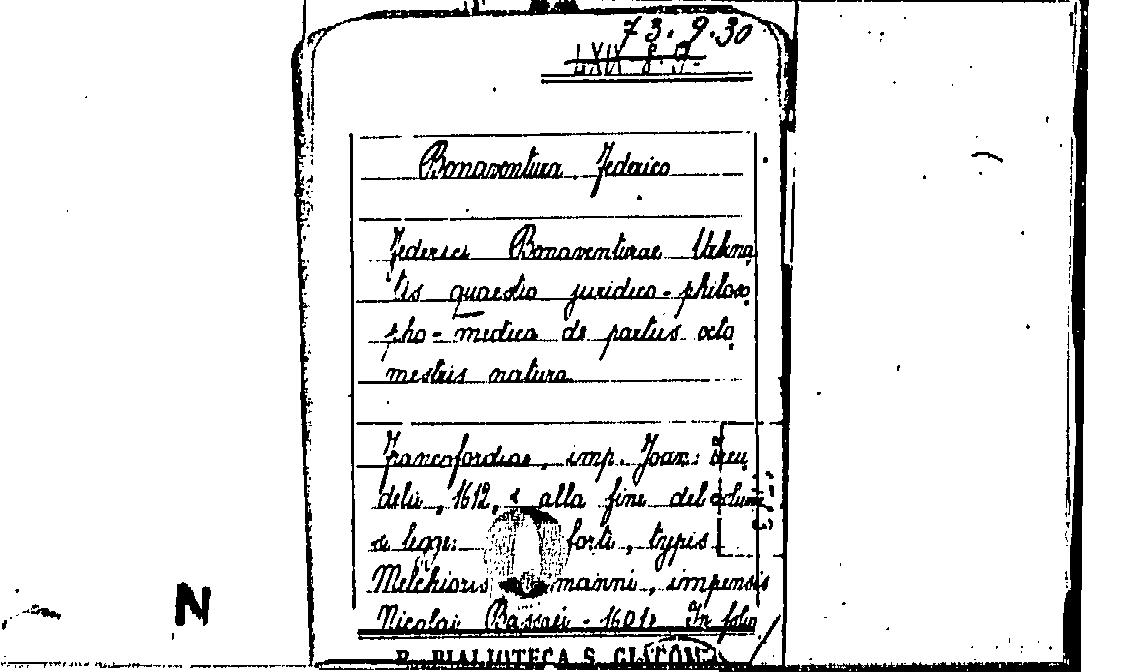 73.9.30
LXIX 8. 9.
Bonaventura Federico
Federici Bonaventurae Urbina
tis quaestio juridico-philoso
pho-medica de partus octo
mestris natura
Francofordiae, imp. Joan:
delii, 1612, e alla fine del volume
si legge: forti, typis
Melchioris manni, impensis
Nicolai Bassaei - 1601. In folio
R. BIBLIOTECA S. GIACOMO